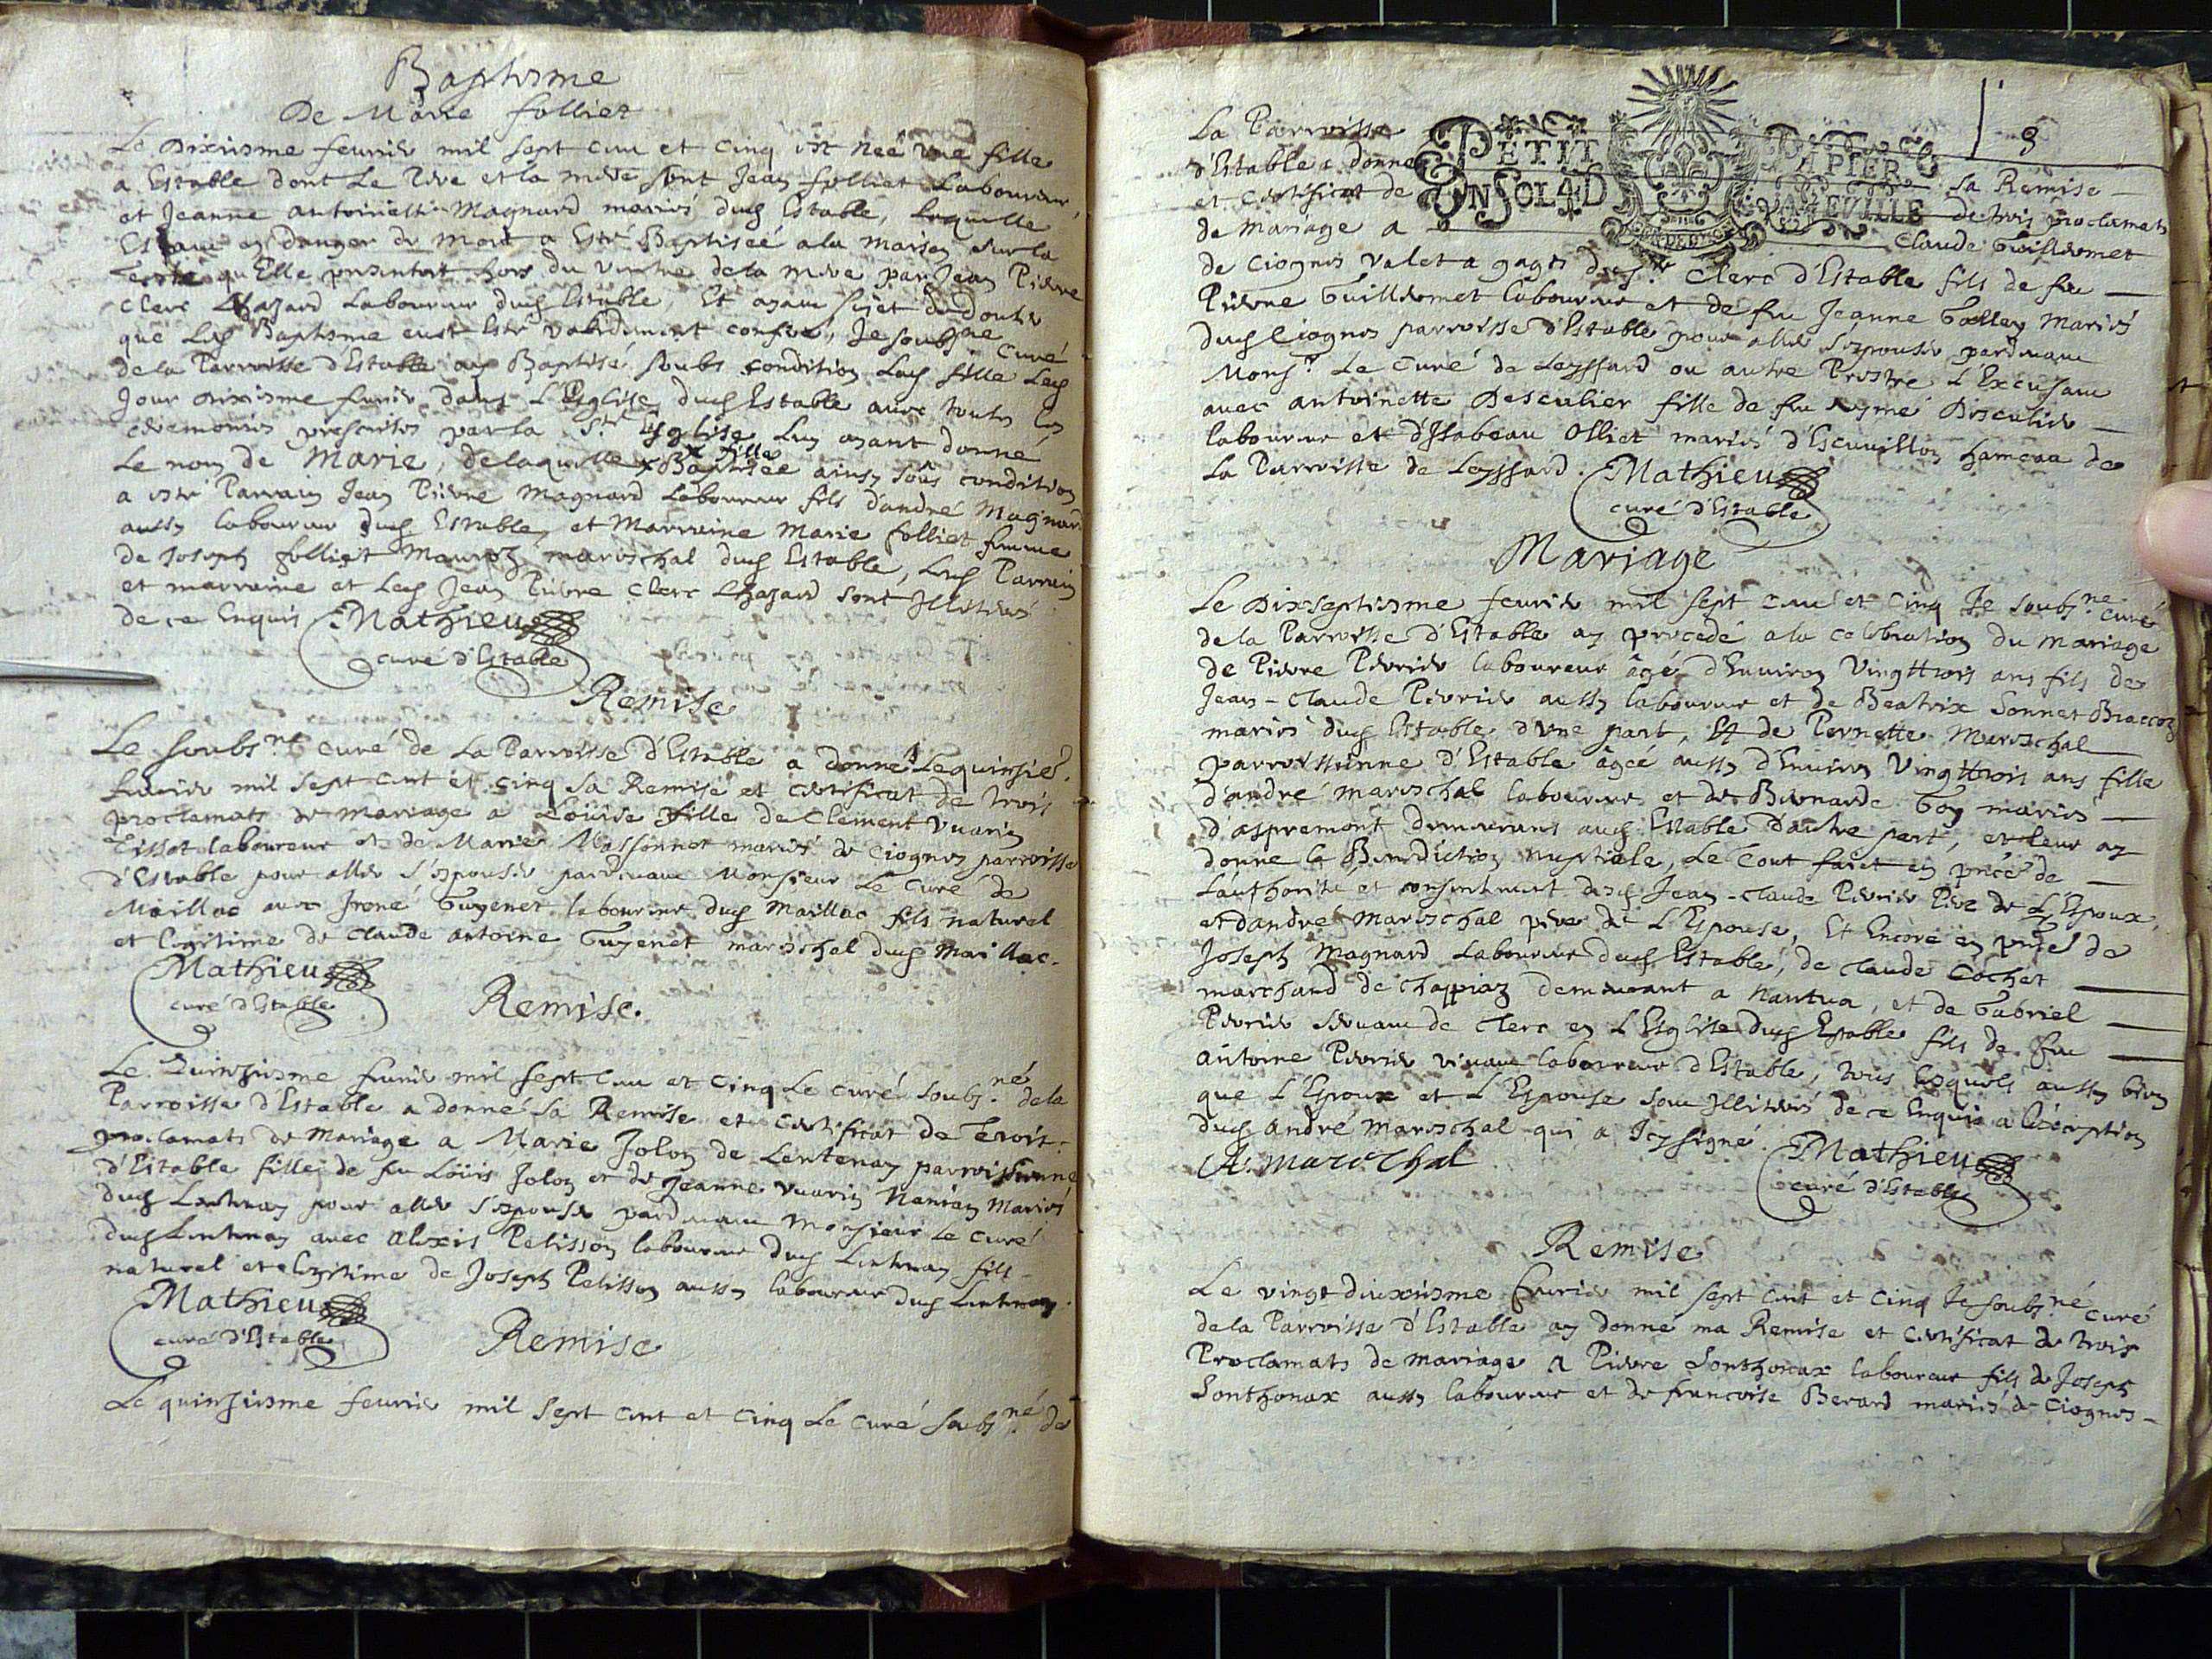 Baptesme
De Marie folliet
Le Dixiesme feurier mil sept cent et cinq est neé vne fille
a Estable dont Le Pere et la mere sont Jean folliet Laboureur
et Jeanne antoinette Magnard mariés dud Estable, Laquelle
Estant en danger de mort a Esté Baptiseé a la maison sur la
teste qu'Elle presentoit hors du ventre de la mere par Jean Pierre
Clerc Lhazard Laboureur dud Estable, Et ayant sujet de doute
que Led Baptesme eust Esté validement conferé, Je soubs.né Curé
de la Parroisse d'Estable ay Baptisé soubs condition Lad fille Led
Jour dixiesme feurier dans L'Esglise dud Estable auec toutes les
ceremonies prescrites par la S.te Esglise Luy ayant donné
x fille
Le nom de Marie, de laquelle x Baptisée ainsy sous condition
a esté Parrain Jean Pierre Magnard Laboureur fils d'andré Magnard
aussy laboureur dud Estable, et Marraine Marie folliet femme
de Joseph folliet Mauroz mareschal dud Estable, Lesd Parrain
et marraine et Led Jean Pierre Clerc Lhazard sont Illiterés
de ce Enquis Mathieu
curé d'Estable
Remise
Le soubs.né curé de La Parroisse d'Estable a donné Lequinzie.
feurier mil sept cent et cinq sa Remise et certificat de trois
proclamats de mariage a Loüise fille de Clement Vuarin
Tissot laboureur et de Marie Massonnet mariés de Ciognes parroisse
d'Estable pour aller s'espouser pardeuant Monsieur Le Curé de
Maillac auec Irené Guyenet laboureur dud Maillac fils naturel
et legitime de Claude antoine Guyenet mareschal dud Maillac.
Mathieu
curé d'Estable
Remise.
Le Quinziesme feurier mil sept cent et cinq Le curé soubs.né de la
Parroisse d'Estable a donné sa Remise et certificat de trois
proclamats de mariage a Marie Jolon de Lentenay parroissienne
d'Estable fille de feu Loüis Jolon et de Jeanne vuarin Nanian Mariés
dud Lentenay pour aller s'espouser pardeuant Monsieur Le Curé
dud Lentenay auec Alexis Pelisson laboureur dud Lentenay fils
naturel et legitime de Joseph Pelisson aussy laboureur dud Lentenay.
Mathieu
curé d'Estable
Remise
Le quinziesme feurier mil sept cent et cinq Le curé soubs.né de
3
PETIT PAPIER
EN SOL 4 D
La Parroisse
d'Estable a donné sa Remise
et certificat de de trois proclamats
de mariage a Claude Guillermet
de Ciognes valet a gages du s.r Clerc d'Estable fils de feu
Pierre Guillermet laboureur et de feu Jeanne Golley Mariés
dud Ciognes parroisse d'Estable pour aller s'espouser pardeuant
Mons.r Le Curé de Leyssard ou autre Prestre L'Excusant
auec antoinette Descalier fille de feu Aymé Descalier
laboureur et d'Isabeau Olliet mariés d'Escuuillon hameau de
La Parroisse de Leyssard. Mathieu
curé d'Estable
Mariage
Le Dixseptiesme feurier mil sept cent et cinq Je soubs.né curé
de la Parroisse d'Estable ay procedé a la celebration du mariage
de Pierre Perrier laboureur âgé d'Enuiron Vingttrois ans fils de
Jean-Claude Perrier aussy laboureur et de Beatrix Sonnet Braccoz
mariés dud Estable d'vne part, Et de Pernette Mareschal
parroissienne d'Estable âgeé aussy d'Enuiron Vingttrois ans fille
d'andré mareschal laboureur et de Bernarde Goy mariés
d'aspremont demeurans aud Estable d'autre part, et leur ay
donné la Benediction nuptiale, Le tout fait en pñce de
L'authorité et consentement desd Jean-Claude Perrier Pere de L'Espoux,
et d'andré mareschal pere de L'Espouse, Et Encore en pñce de
Joseph Magnard Laboureur dud Estable, de Claude Cochet
marchand de Chappiaz demeurant a Nantua, et de Gabriel
Perrier seruant de Clerc en L'Esglise dud Estable fils de feu
antoine Perrier viuant laboureur d'Estable, tous lesquels aussy bien
que L'Espoux et L'Espouse sont Illiterés de ce Enquis a L'éxeption
dud andré Mareschal qui a Icy signé.
A. marechal Mathieu
curé d'Estable
Remise
Le vingt deuxiesme feurier mil sept cent et cinq Je soubs.né curé
de la Parroisse d'Estable ay donné ma Remise et certificat de trois
Proclamats de mariage a Pierre Sonthonax laboureur fils de Joseph
Sonthonax aussy laboureur et de francoise Berard mariés de Ciognes